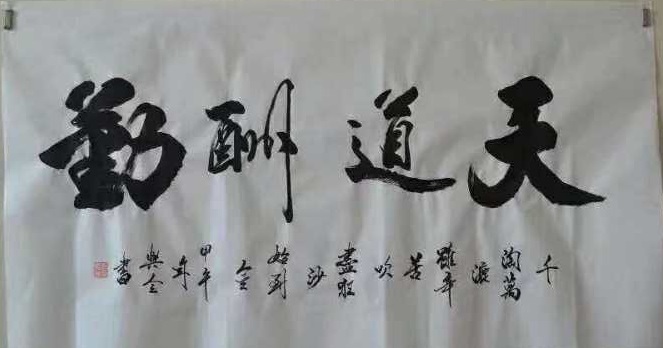 天道酬勤
千淘萬漉雖辛苦吹盡狂沙始到金甲午年書